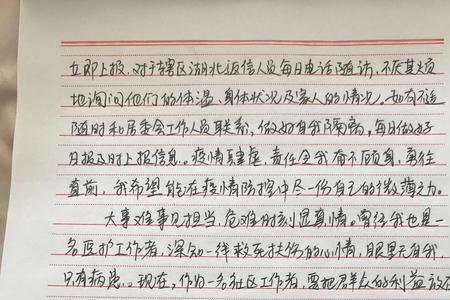 立即上报。对于辖区湖北返信人员每日电话随访，不厌其烦
地询问他们的体温、身体状况及家人的情况。如有不适
随时和居委会工作人员联系，做好自我隔离。每日做好
日报及时上报信息。疫情肆虐，责任令我奋不顾身，勇往
直前，我希望能在疫情防控中尽一份自己的微薄之力。
大事难事见担当，危难时刻显真情。曾经我也是一
名医护工作者，深知一线救死扶伤的心情，眼里无自我，
只有病患。现在，作为一名社区工作者，要把群众的利益放在